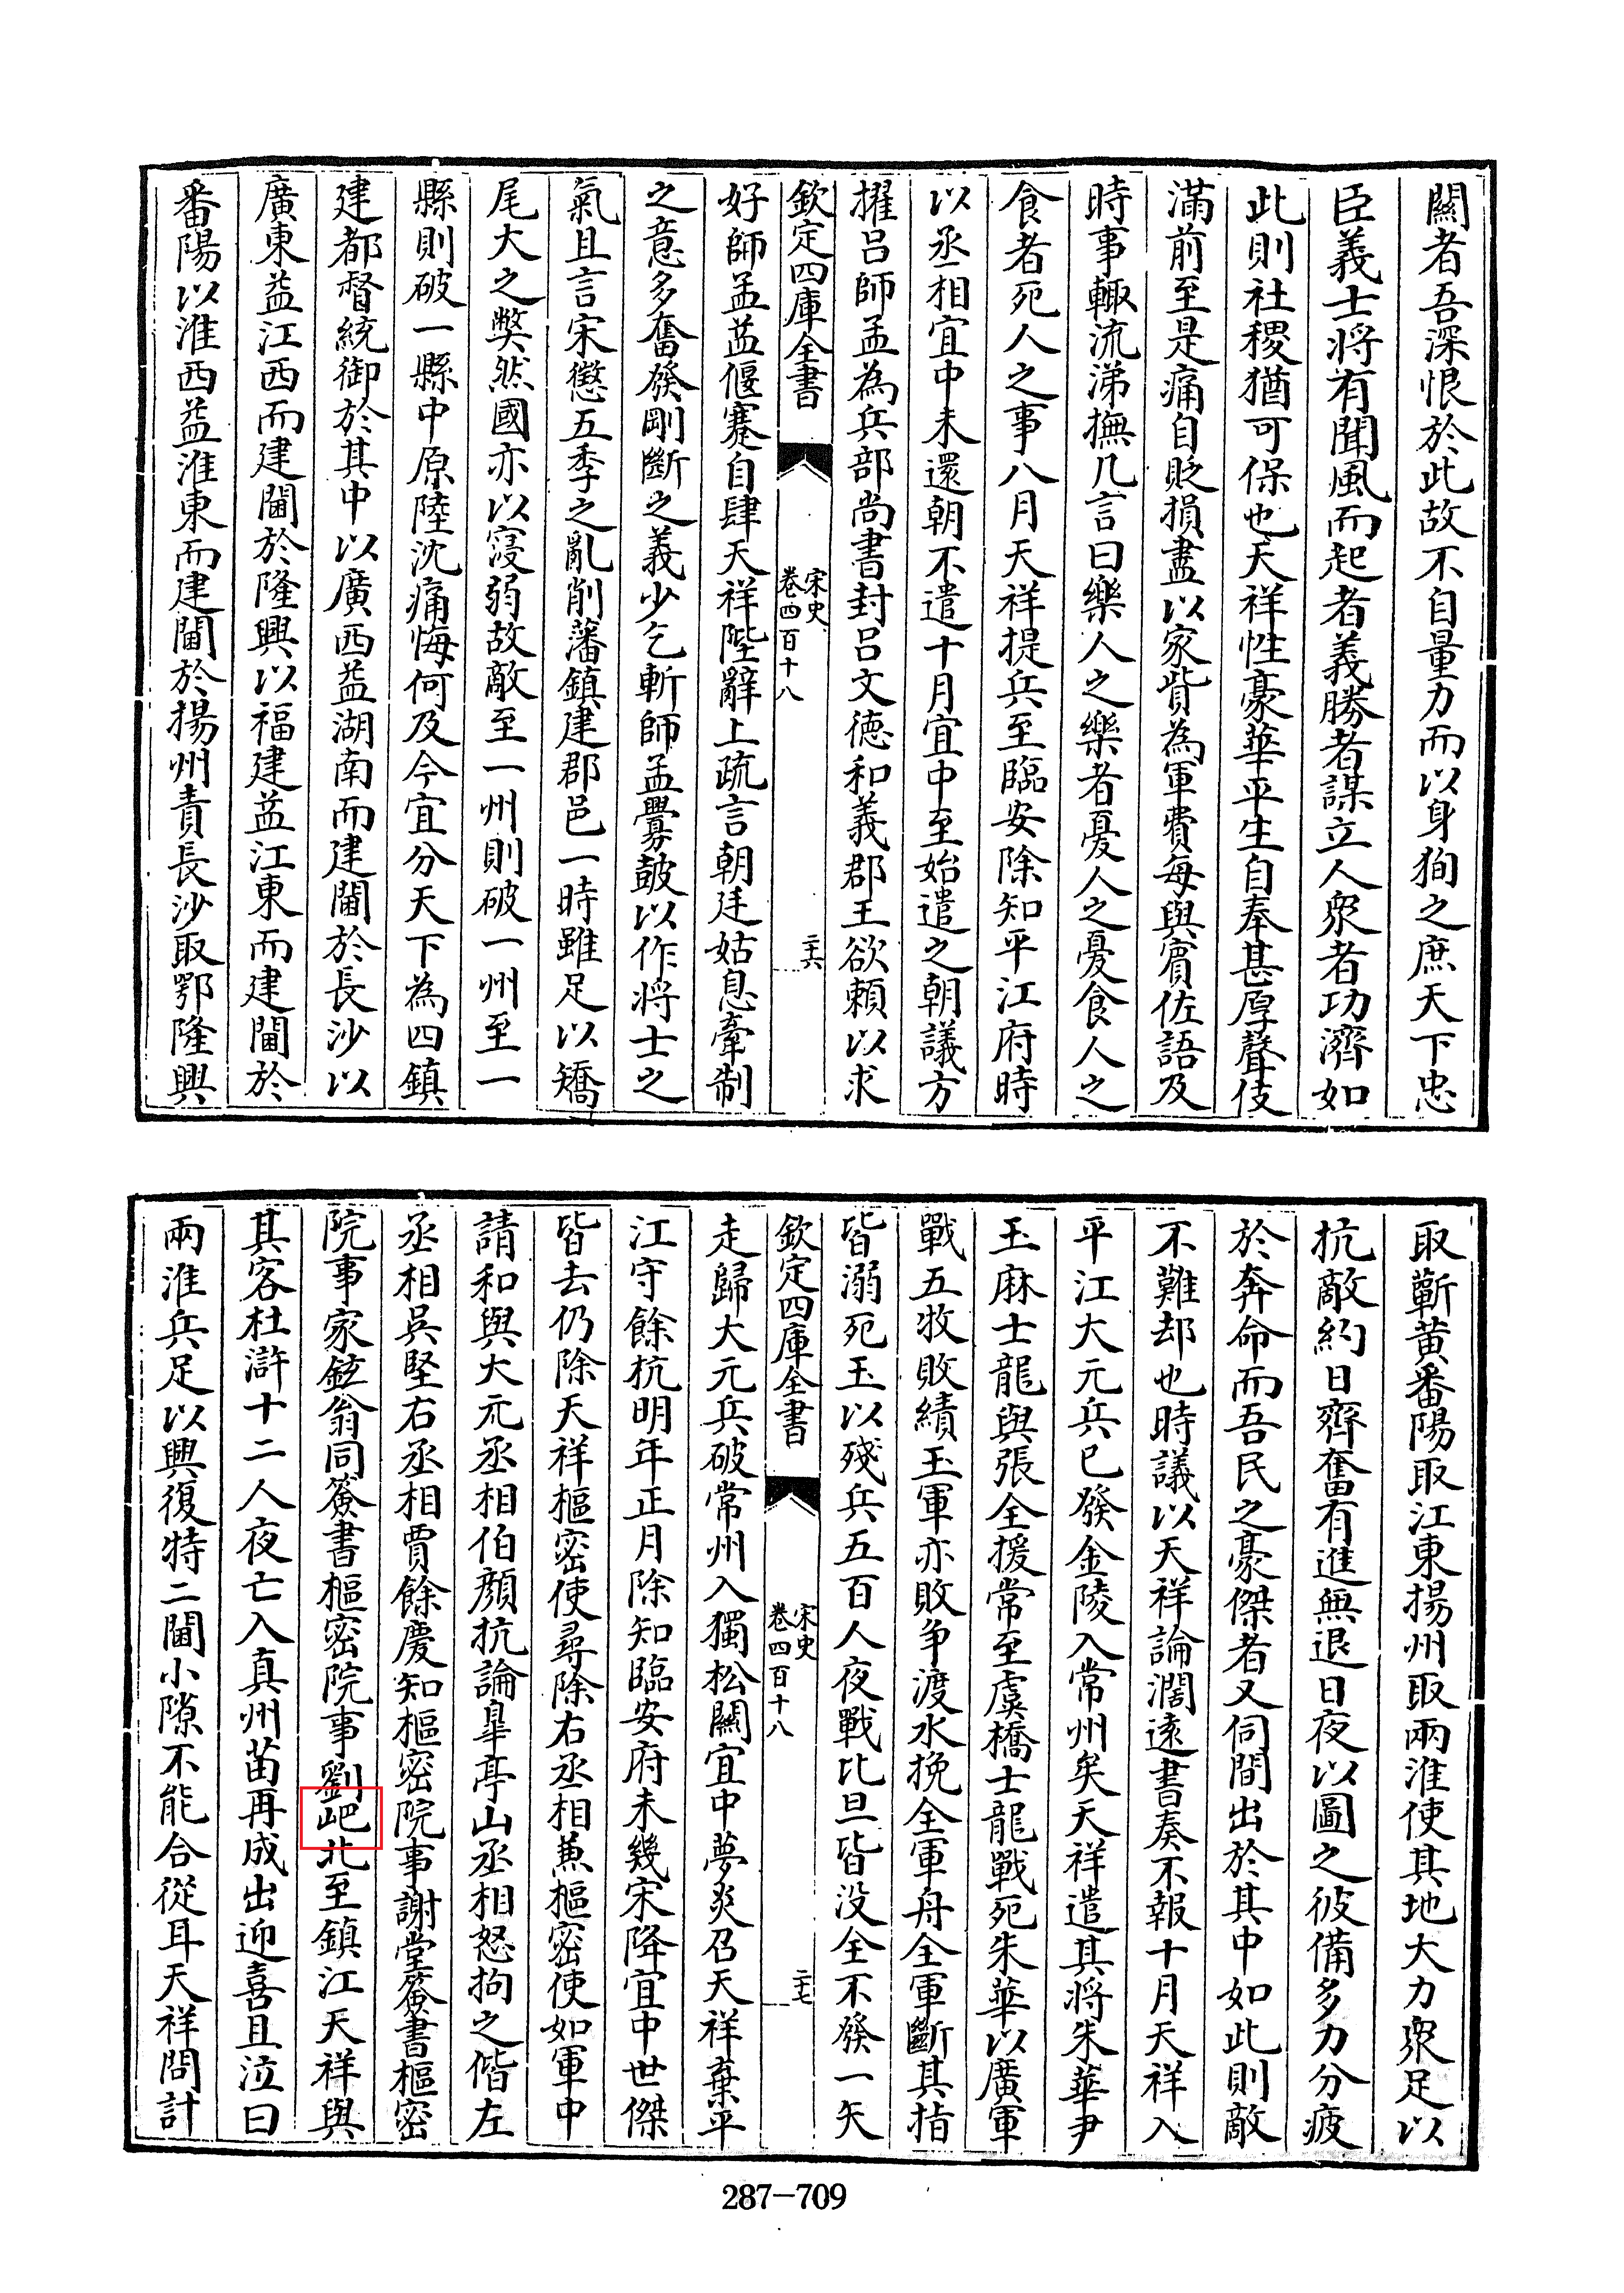 闗者吾深恨於此故不自量力而以身狥之庶天下忠
臣義士将有聞風而起者義勝者謀立人衆者功濟如
此則社稷猶可保也天祥性豪華平生自奉甚厚聲伎
滿前至是痛自貶損盡以家貲為軍費每與賔佐語及
時事輙流涕撫几言曰樂人之樂者憂人之憂食人之
食者死人之事八月天祥提兵至臨安除知平江府時
以丞相宜中未還朝不遣十月宜中至始遣之朝議方
擢吕師孟為兵部尚書封吕文徳和義郡王欲頼以求
欽定四庫全書
宋史
卷四百十八
二十六
好師孟葢偃蹇自肆天祥陛辭上疏言朝廷姑息牽制
之意多奮發剛斷之義少乞斬師孟釁鼓以作将士之
氣且言宋懲五季之亂削藩鎮建郡邑一時雖足以矯
尾大之弊然國亦以寖弱故敵至一州則破一州至一
縣則破一縣中原陸沈痛悔何及今宜分天下為四鎮
建都督統御於其中以廣西益湖南而建閫於長沙以
廣東益江西而建閫於隆興以福建益江東而建閫於
番陽以淮西益淮東而建閫於揚州責長沙取鄂隆興
取蘄黄番陽取江東揚州取兩淮使其地大力衆足以
抗敵約日齊奮有進無退日夜以圖之彼備多力分疲
於奔命而吾民之豪傑者又伺間出於其中如此則敵
不難却也時議以天祥論濶逺書奏不報十月天祥入
平江大元兵已發金陵入常州矣天祥遣其将朱華尹
玉麻士龍與張全援常至虞橋士龍戰死朱華以廣軍
戰五牧敗績玉軍亦敗争渡水挽全軍舟全軍斷其指
皆溺死玉以殘兵五百人夜戰比旦皆没全不發一矢
欽定四庫全書
宋史
卷四百十八
二十七
走歸大元兵破常州入獨松闗宜中夢炎召天祥棄平
江守餘杭明年正月除知臨安府未幾宋降宜中世傑
皆去仍除天祥樞密使尋除右丞相兼樞密使如軍中
請和與大元丞相伯顔抗論臯亭山丞相怒拘之偕左
丞相吳堅右丞相賈餘慶知樞密院事謝堂簽書樞密
院事家鉉翁同簽書樞密院事劉岊北至鎮江天祥與
其客杜滸十二人夜亡入真州苗再成出迎喜且泣曰
兩淮兵足以興復特二閫小隙不能合從耳天祥問計
287-709